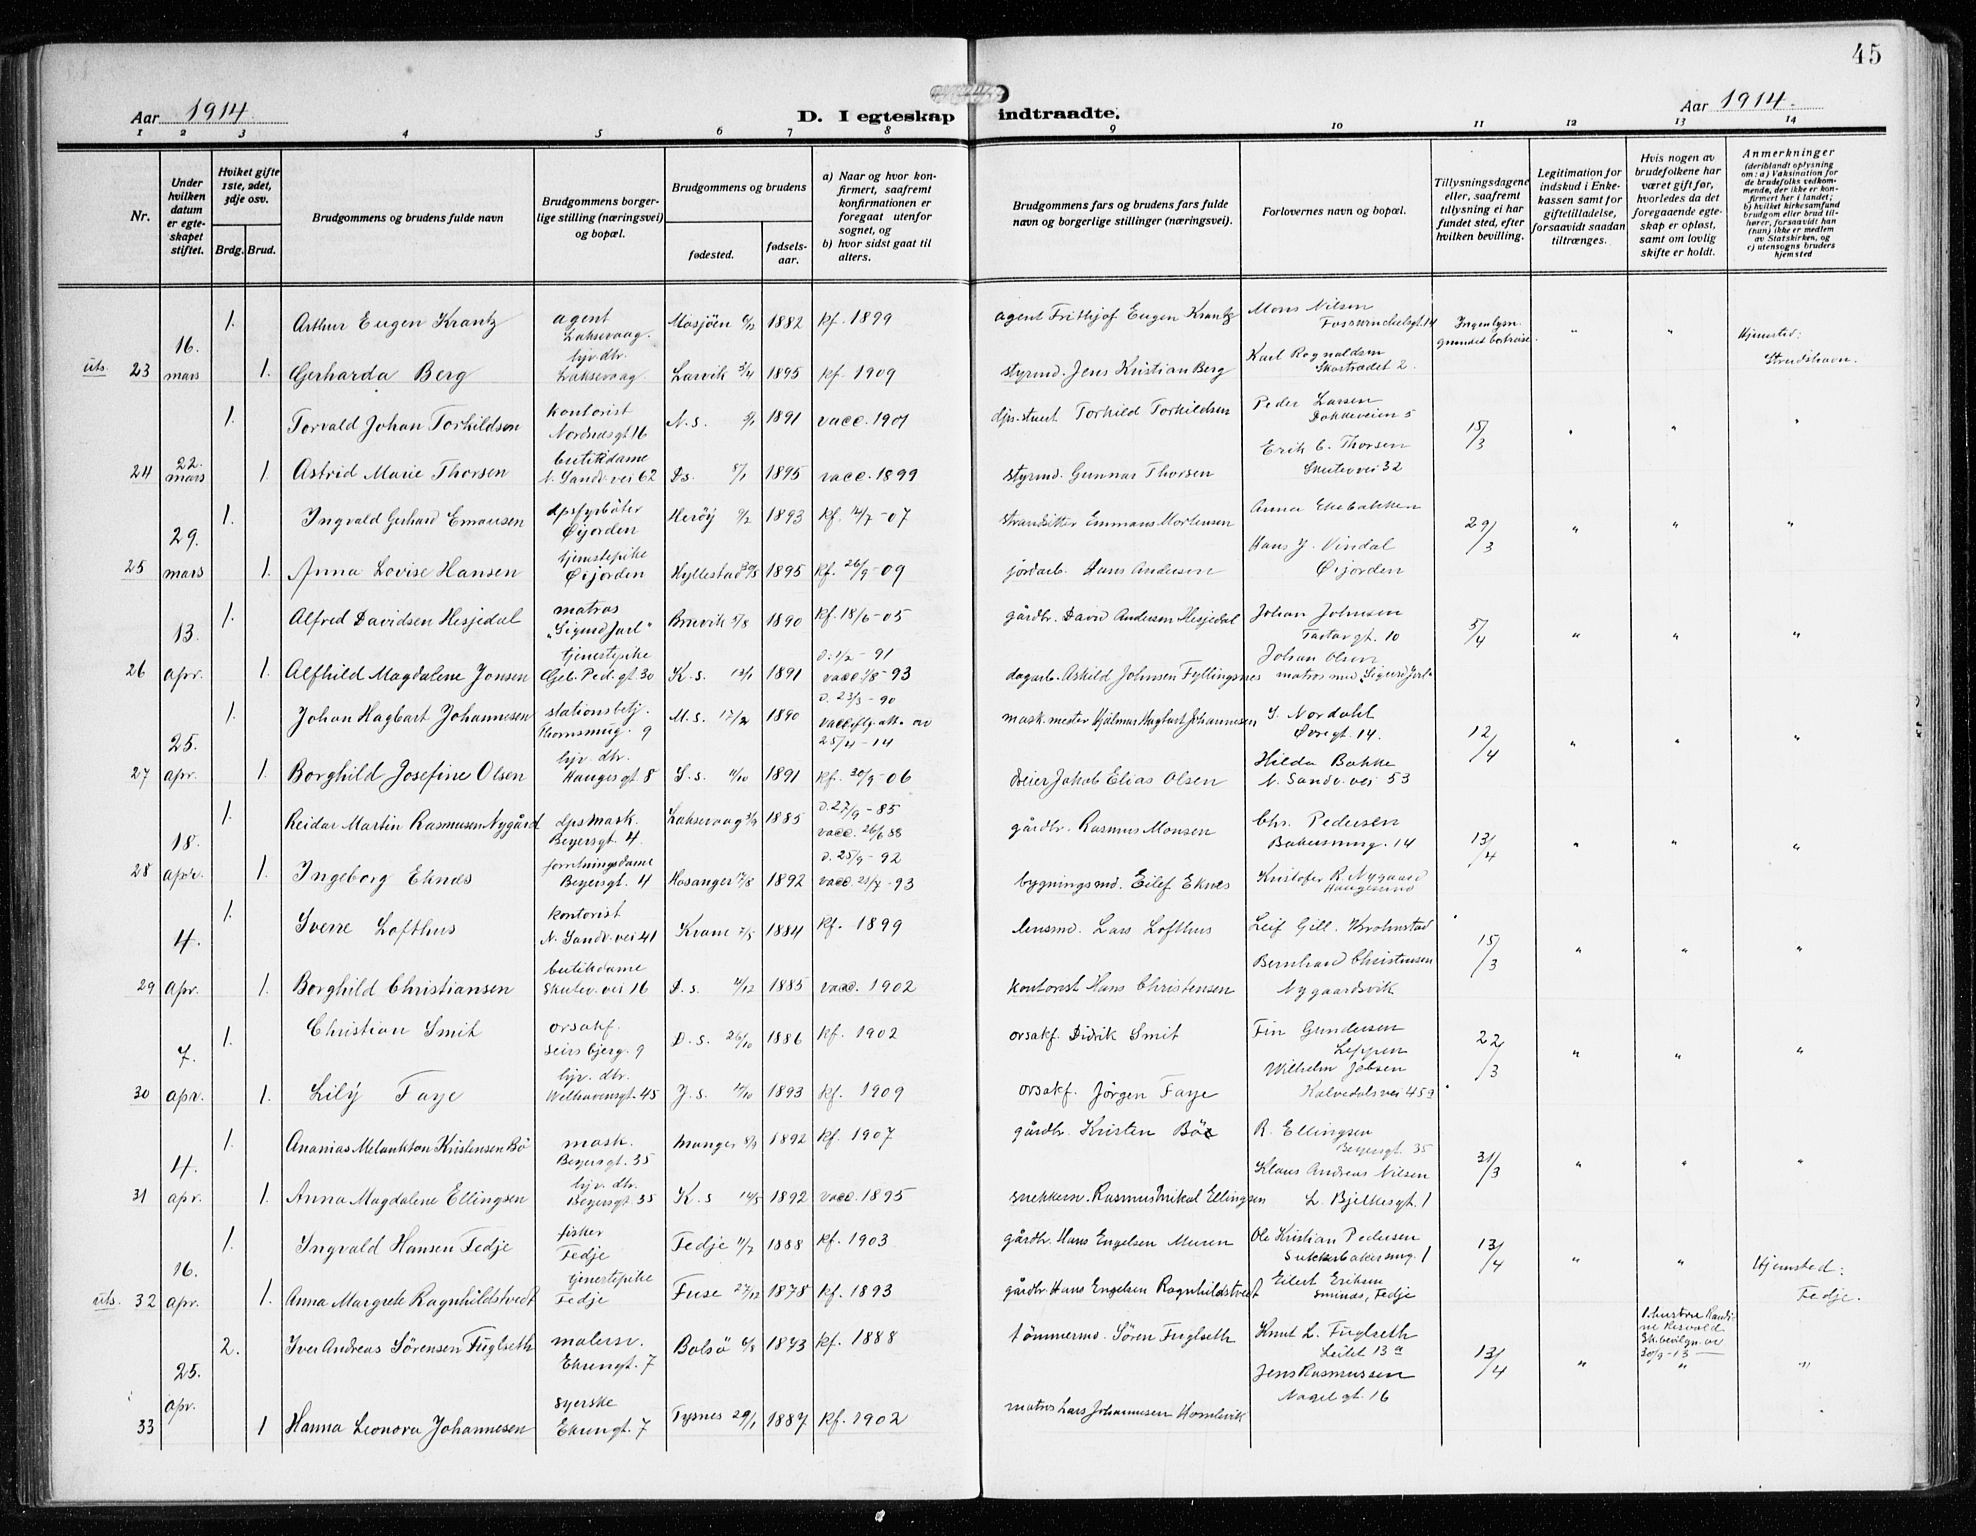 45
Aar 1914.
D. I egteskap indtraadte.
Aar 1914.
1 2 3 4 5 6 7 8 9 10 11 12 13 14
Nr.
Under hvilken datum er egteskapet stiftet.
Hviket gifte 1ste, 2det, 3dje osv.
Brdg. Brud.
Brudgommens og brudens fulde navn
Brudgommens borgerlige stilling (næringsvei) og bopæl.
Brudgommens og brudens
fødested.
fødselsaar.
a) Naar og hvor konfirmert, saafremt konfirmationen er foregaat utenfor sognet, og
b) hvor sidst gaat til alters.
Brudgommens fars og brudens fars fulde navn og borgerlige stillinger (næringsvei).
Forlovernes navn og bopæl.
Tillysningsdagene eller, saafremt tillysning ei har fundet sted, efter hvilken bevilling.
Legitimation for indskud i Enkekassen samt for giftetilladelse, forsaavidt saadan tiltrænges.
Hvis nogen av brudefolkene har været gift før, hvorledes da det foregaaende egteskap er opløst, samt om lovlig skifte er holdt.
Anmerkninger
(deriblandt oplysning om: a) Vaksination for de brudefolks vedkommende, der ikke er konfirmert her i landet; b) hvilket kirkesamfund brudgom eller brud tilhører, forsaavidt han (hun) ikke er medlem av Statskirken, og c) utensogns bruders hjemsted
uts. 23 16. mars
1. Arthur Eugen Krantz agent Laksevaag. Mosjöen 6/12 1882 kf. 1899 agent Frithjof Eugen Krantz Mons Nilsen Fosswinchelsgt. 14 Hjemsted:
1. Gerharda Berg hjv. dtr. Laksevaag. Larvik 3/4 1895 kf. 1909 styrmd. Jens Kristian Berg Karl Rognaldsen Skostrædet 2. Strudshavn.
24 22. mars
1. Torvald Johan Torhildsen kontorist Nordnæsgt 16 N.s. 1891 vacc. 1901 Torhild Torhildsen Peder Larsen Dokkeveien 5 15/3
1. Astrid Marie Thorsen butikdame N. Sandv.vei 62 Ds. 8/1 1895 vacc. 1899 styrmd. Gunnar Thorsen Erik C. Thorsen Skutevei 32
25 29. mars
1. Ingvald Gerhard Emausen dpsfyrböter Öijorden Heröy 9/2 1893 kf. 14/7-07 strandsitter Emmans Mortensen Anna Ekebakken 29/3
1. Anna Lovise Hansen tjenestepike Öijorden Hyllestad 30/5 1895 kf. 26/9-09 jordarb. Hans Andersen Hans J. Vindal Öijorden
26 13. apr.
1. Alfred Davidsen Hesjedal matros „Sigurd Jarl" Brevik 5/8 1890 kf. 18/6-05 gårdbr. David Andersen Hesjedal Johan Johnsen Tartargt. 10 5/4
1. Alfhild Magdalene Jonsen tjenestepike Geb. Ped. gt. 30 K.s. 13/1 1891 d. 1/2-91 vacc. 1/8-93 dagarb. Askild Johnsen Fyllingsnes Johan Olsen matros med „Sigurd Jarl"
27 25. apr.
1. Johan Hagbart Johannesen stationsbetj. Thormsmug. 9 M.s. 17/2 1890 d. 23/3-90 25/4-14 mask.mester Hjalmar Hagbart Johannesen S. Nordahl Övregt. 14. 12/4
1. Borghild Josefine Olsen hjv. dtr. Haugesgt 8 S.s. 11/10 1891 kf. 30/9-06 Jakob Elias Olsen Hilda Bakke N. Sandv.vei 53
28 18. apr.
1. Reidar Martin Rasmusen Nygård dpsmask. Beyersgt. 4 Laksevaag 3/9 1885 d. 27/9-85 vacc. 26/6 88 gårdbr. Rasmus Monsen Chr. Pedersen Bakersmug. 14 13/4
1. Ingeborg Eknes forretningsdame Beyersgt. 4 Hosanger 1892 d. 25/9-92 vacc. 25/7-93 bygningsmd. Eilef Eknes Kristofer R. Nygaard Haugesund
29 4. apr.
1. Sverre Lofthus kontorist N. Sandv.vei 41 Krane 7/5 1884 kf. 1899 lensmd. Lars Lofthus Leif Gill. Krohnstad 15/3
1. Borghild Christiansen butikdame Skutev.vei 16 D.s. 1885 vacc. 1902 kontorist Hans Christensen Bernhard Christensen Nygaardsvik
30 7. apr.
1. Christian Smit orsakf. Seirsbjerg. 9 D.s. 26/10 1886 kf. 1902 orsakf. Didrik Smit Fin Gundersen Leppen 22/3
1. Lily Faye hjv. dtr. Welhavensgt. 45 J.s. 1893 kf. 1909 orsakf. Jörgen Faye Wilhelm Jebsen Kalvedalsvei 45a
31 4. apr.
1. Ananias Melankton Kristensen Bö mask. Beyersgt. 35 Manger 8/9 1892 kf. 1907 gårdbr. Kristen Bö R. Ellingsen Beyersgt. 35 31/3
1. Anna Magdalene Ellingsen hjv. dtr. Beyersgt 35 K.s 14/5 1892 vacc. 1895 snekkerm. Rasmus Mikal Ellingsen Klaus Andreas Nilsen L. Bjelkesgt. 1
uts. 32 16. apr.
1. Ingvald Hansen Fedje fisker Fedje Fedje 11/7 1888 kf. 1903 gårdbr. Hans Engelsen Muren Ole Kristian Pedersen Sukkerbakersmug. 1 13/4 Hjemsted:
1. Anna Margrete Ragnhildstvedt tjenestepike Fedje Fuse 27/12 1878 kf. 1893 gårdbr Hans Engelsen Ragnhildstvedt Eilert Eriksen Sminæs, Fedje Fedje.
33 25. apr.
2. Iver Andreas Sörensen Fuglseth malersv. Ekrengt. 7 Bolsö 6/8 1873 kf. 1888 tömmermd. Sören Fuglseth Knut L. Fuglseth Leitet 13a 13/4 30/9-13
1 Hanna Leonora Johannesen syerske Ekrengt. 7 Tysnes 29/1 1887 kf. 1902 matros Lars Johannesen Homlevik Jens Rasmussen Nagelgt. 16